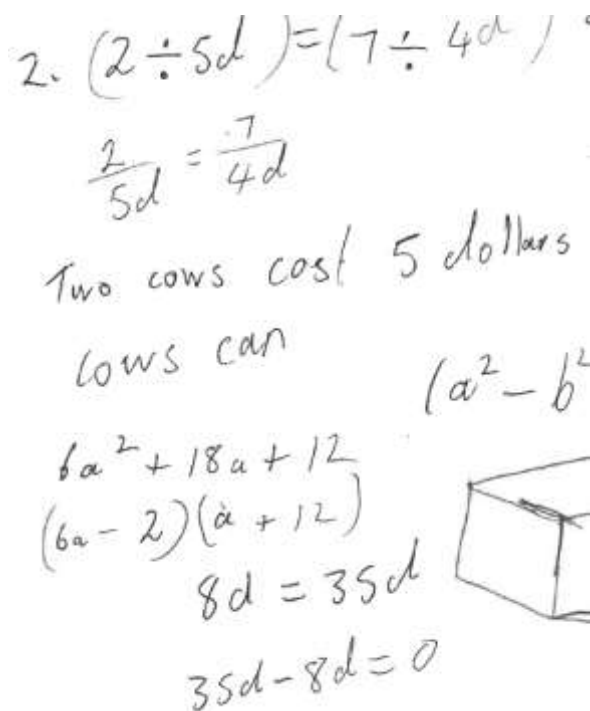 2. (2 ÷ 5d) = (7 ÷ 4d)
2/5d = 7/4d
Two cows cost 5 dollars
cows can
(a² - b²
6a² + 18a + 12
(6a - 2)(a + 12)
8d = 35d
35d - 8d = 0